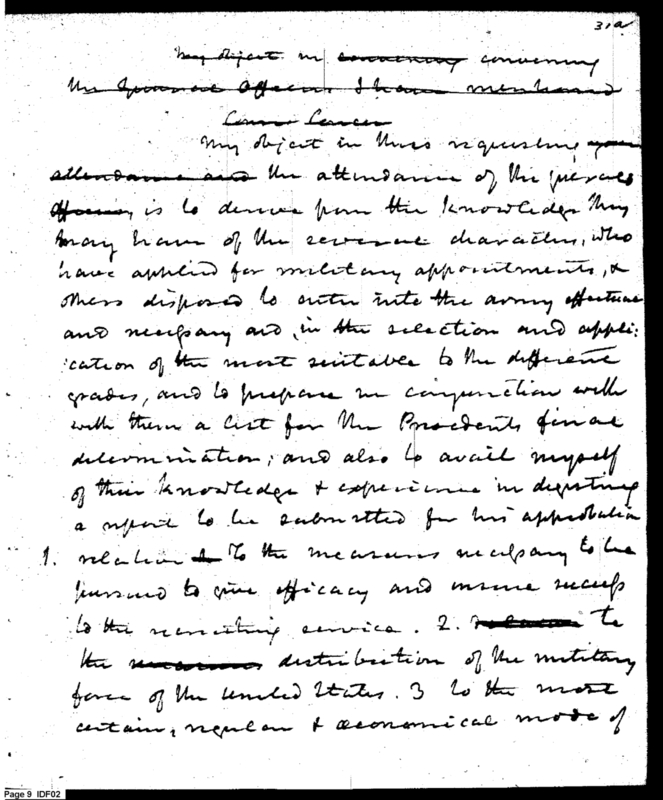 31a
My object in convening convening
the General Officers I have mentioned
My object in thus requesting your
attendance and the attendance of the general
Officers is to derive from the knowledge they
may have of the several characters, who
have applied for military appointments, &
others disposed to enter into the army effectual
and necessary aid, in the selection and appli:
:cation of the most suitable to the different
grades, and to prepare in conjunction with
with them a list for the Presidents final
determination; and also to avail myself
of their knowledge & experience in digesting
a report to be submitted for his approbation
1. relative to To the measures necessary to be
pursued to give efficacy and insure success
to the recruiting service. 2. to
the distribution of the military
force of the United States. 3 to the most
certain, regular & œconomical mode of
Page 9 IDF02